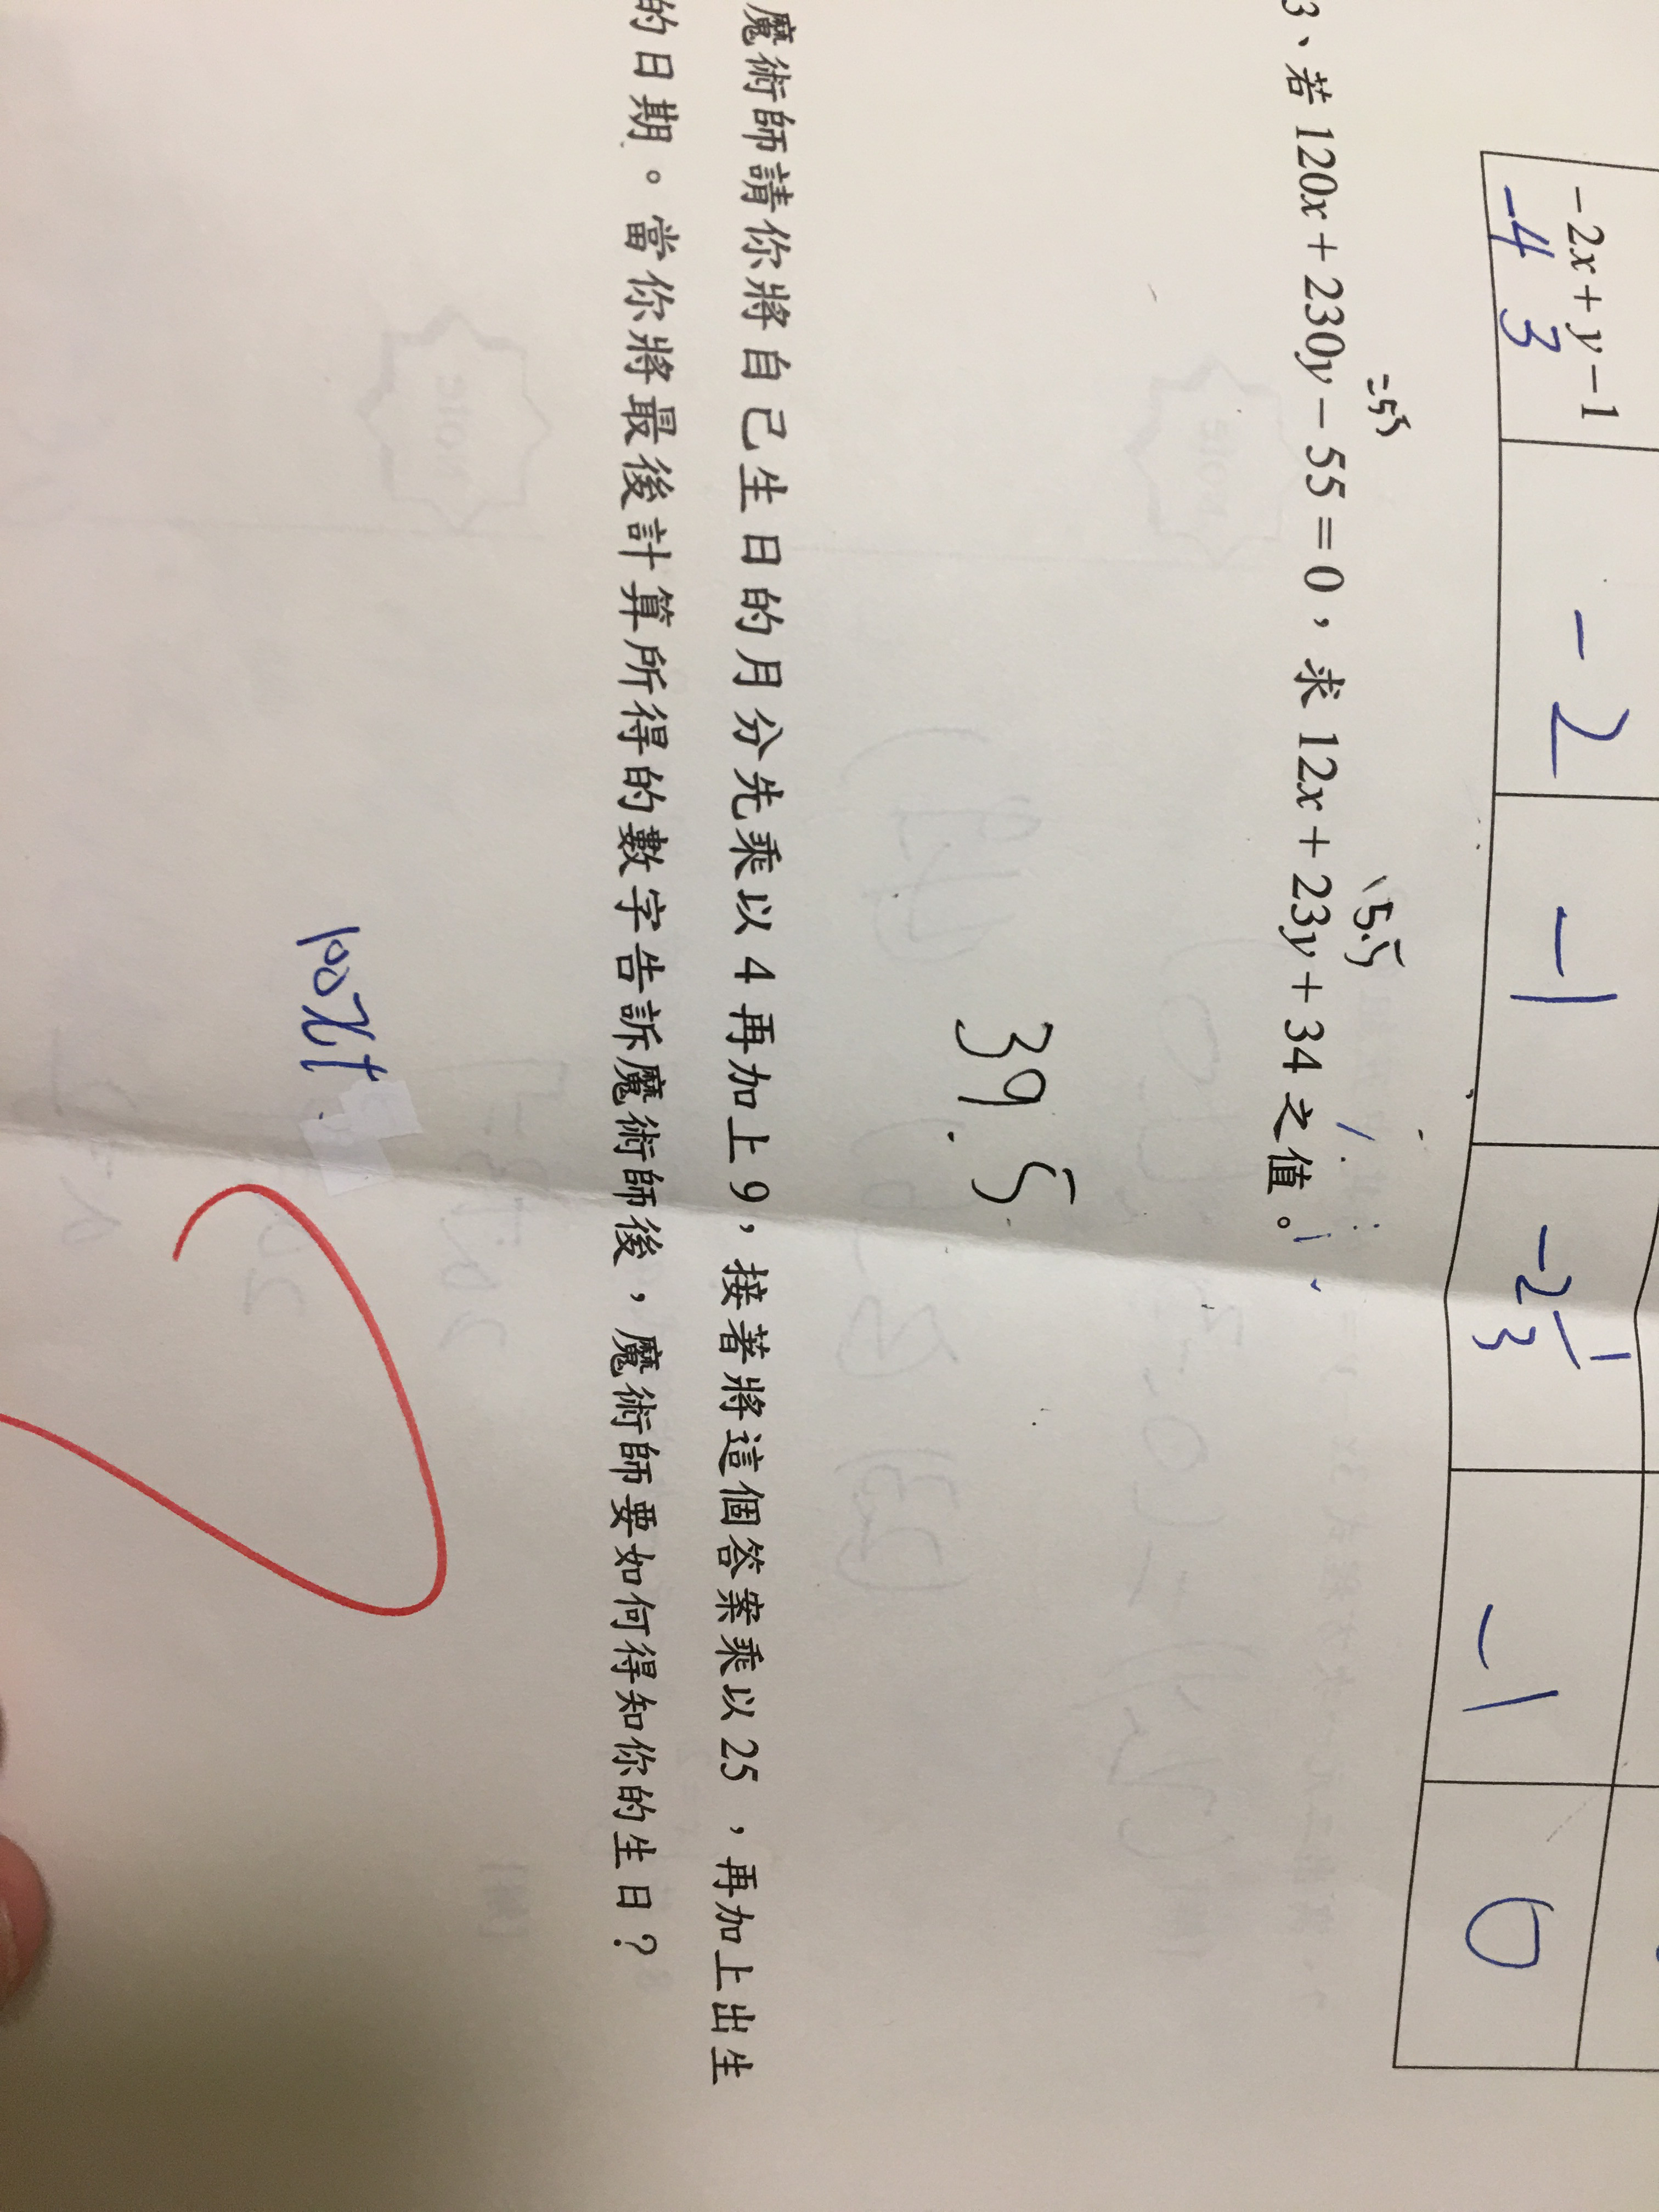 -2x+y-1 -2 -1 -2 1/3 -1 0
-4 3
=55 5.5
3、若 120x+230y-55=0，求 12x+23y+34 之值。
39.5
魔術師請你將自己生日的月分先乘以 4 再加上 9，接著將這個答案乘以 25，再加上出生
的日期。當你將最後計算所得的數字告訴魔術師後，魔術師要如何得知你的生日？
100x+